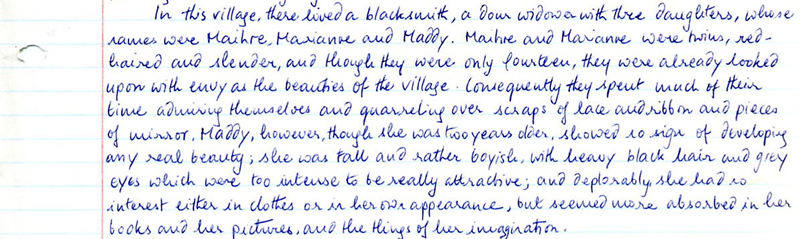 In this village, there lived a blacksmith, a dour widower with three daughters, whose
names were Maihre, Marianne and Maddy. Maihre and Marianne were twins, red-
haired and slender, and though they were only fourteen, they were already looked
upon with envy as the beauties of the village. Consequently they spent much of their
time admiring themselves and quarreling over scraps of lace and ribbon and pieces
of mirror. Maddy, however, though she was two years older, showed no sign of developing
any real beauty; she was tall and rather boyish, with heavy black hair and grey
eyes which were too intense to be really attractive; and deplorably, she had no
interest either in clothes or in her own appearance, but seemed more absorbed in her
books and her pictures, and the things of her imagination.